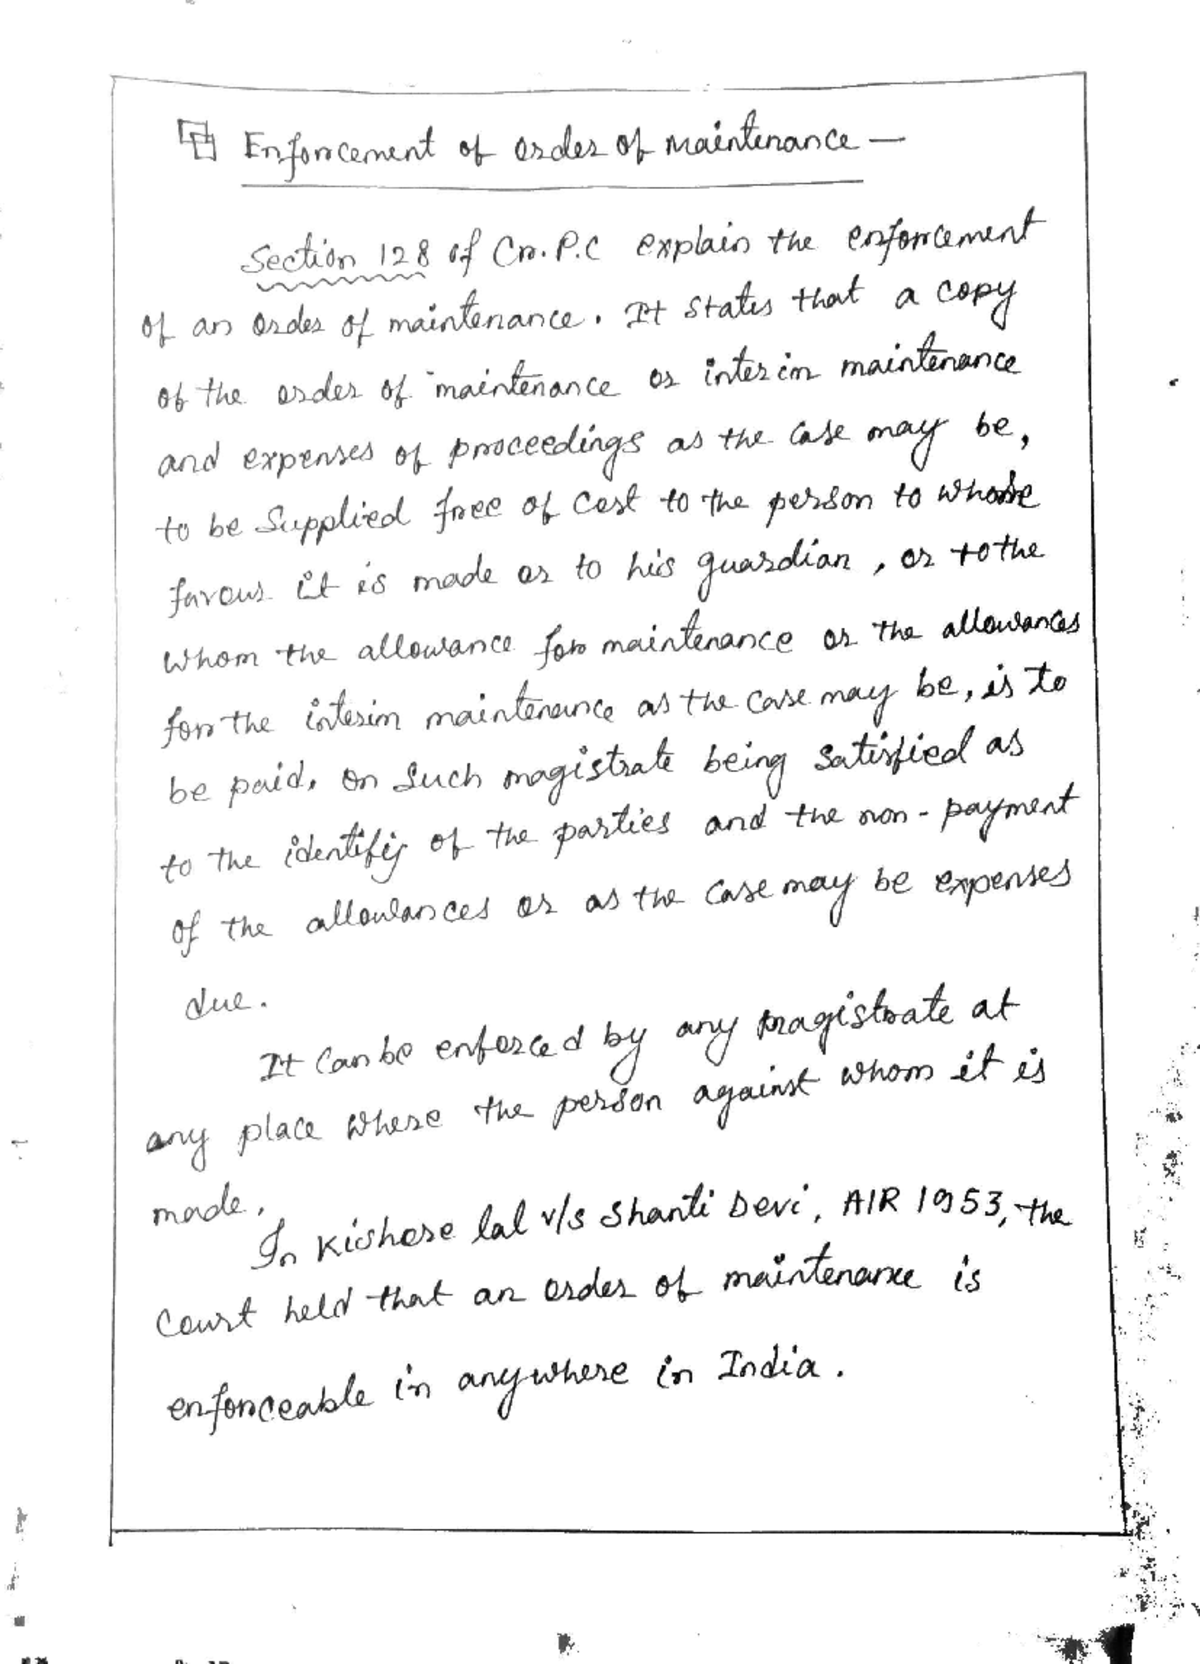 Enforcement of order of maintenance —
Section 128 of Cr.P.C explain the enforcement
of an order of maintenance. It states that a copy
of the order of maintenance or interim maintenance
and expenses of proceedings as the case may be,
to be supplied free of cost to the person to whose
favour it is made or to his guardian, or to the
whom the allowance for maintenance or the allowances
for the interim maintenance as the case may be, is to
be paid. on such magistrate being satisfied as
to the identifiy of the parties and the non-payment
of the allowances or as the case may be expenses
due.
It can be enforced by any magistrate at
any place where the person against whom it is
made.
In Kishore lal v/s Shanti Devi, AIR 1953, the
Court held that an order of maintenance is
enforceable in anywhere in India.